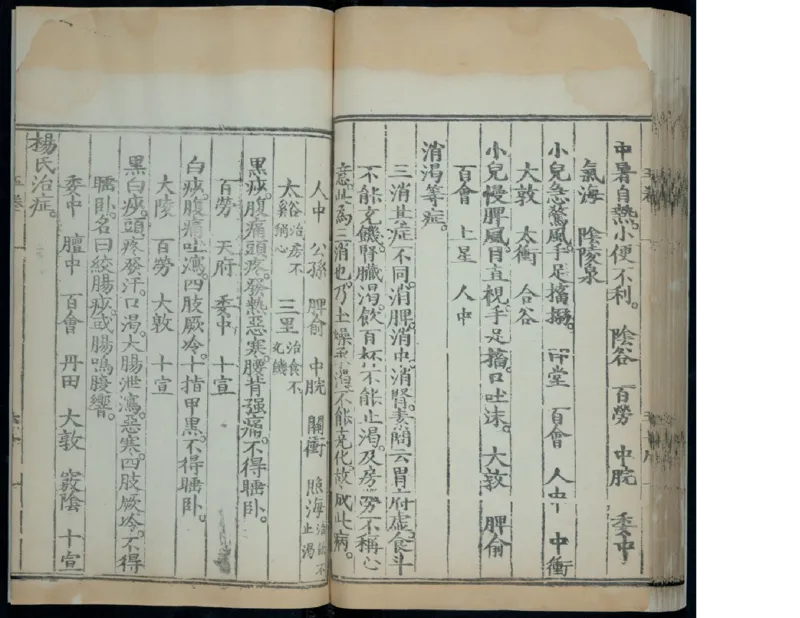 中暑自熱。小便不利。 陰谷 百勞 中脘 委中
氣海 陰陵泉
小兒急驚風。手足搐搦。 印堂 百會 人中 中衝
大敦 太衝 合谷
小兒慢脾風。目直視。手足搐。口吐沫。 大敦 脾俞
百會 上星 人中
消渴等症。
三消其症不同。消脾。消中。消腎。素問云。胃府虛。食斗
不能充饑。腎臟渴。飲百杯不能止渴。及房勞不稱心
意。此爲三消也。乃土燥承渴。不能克化。故成此病。
人中 公孫 脾俞 中脘 關衝 照海 治飲不止渴
太谿 治房不稱心 三里 治食不充饑
黑痧。腹痛頭疼。發熱惡寒。腰背强痛。不得睡卧。
百勞 天府 委中 十宣
白痧。腹痛吐瀉。四肢厥冷。十指甲黑。不得睡卧。
大陵 百勞 大敦 十宣
黑白痧。頭疼發汗。口渴。大腸泄瀉。惡寒。四肢厥冷。不得
睡卧。名曰絞腸痧。或腸鳴腹響。
委中 膻中 百會 丹田 大敦 竅陰 十宣
楊氏治症。
五卷